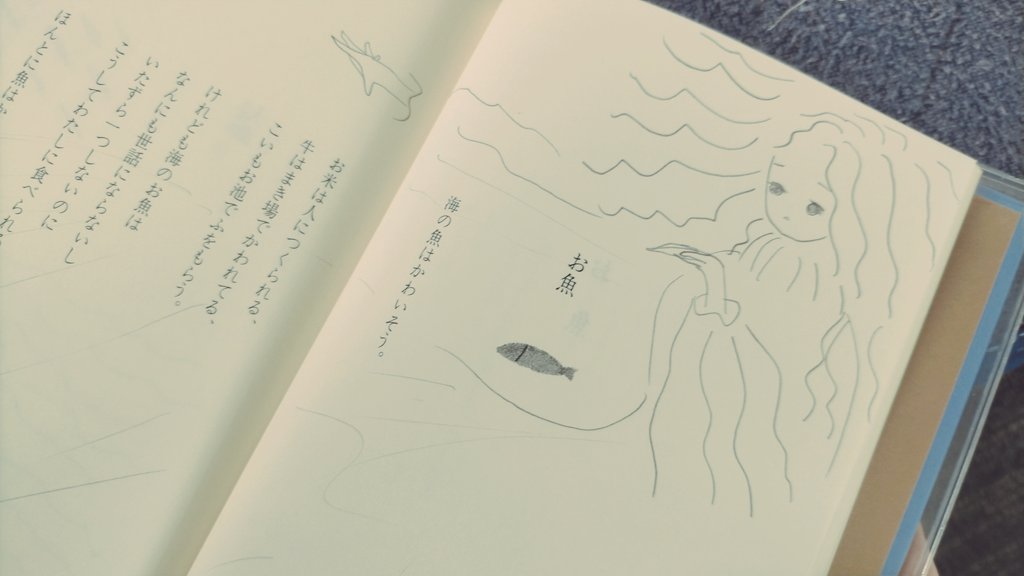 お魚
海の魚はかわいそう。
お米は人につくられる、
牛はまき場でかわれてる、
こいもお池でふをもらう。
けれども海のお魚は
なんにも世話にならないし
いたずら一つしないのに
こうしてわたしに食べられる。
ほんとに魚は